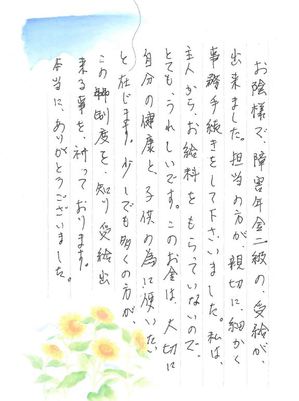 お陰様で、障害年金二級の、受給が、
出来ました。担当の方が、親切に、細かく
事務手続きをして下さいました。私は、
主人から、お給料をもらっていないので、
とても、うれしいです。このお金は、大切に
自分の健康と、子供の為に使いたい
と存じます。少しでも多くの方が、
この制度を、知り受給出
来る事を、祈っております。
本当に、ありがとうございました。